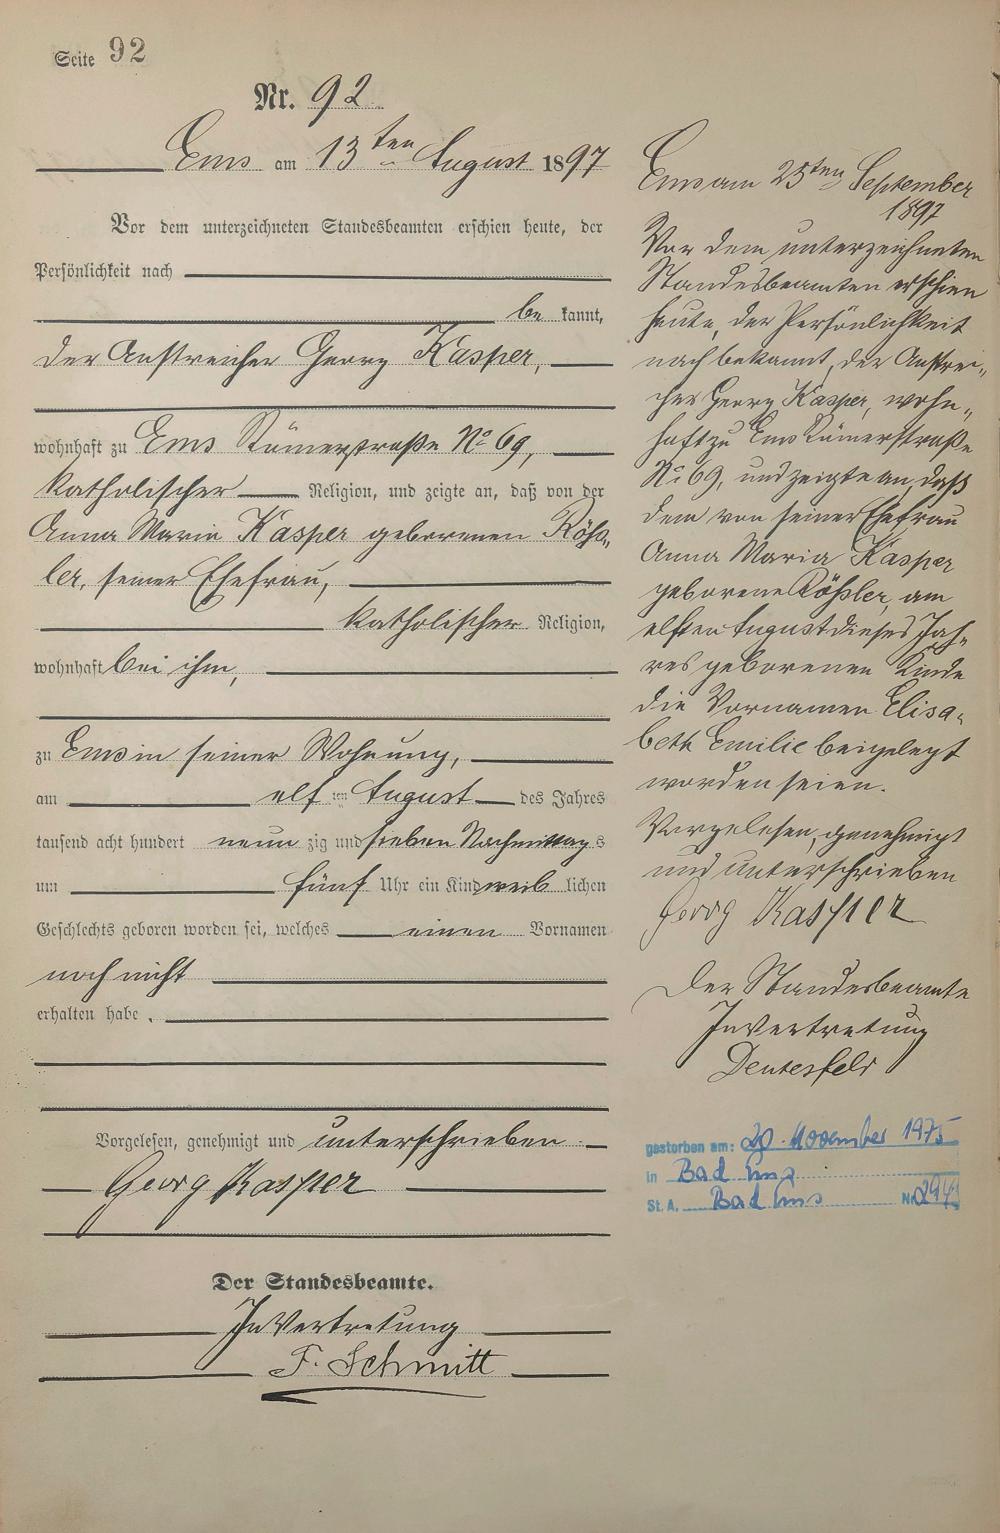 Seite 92
Nr. 92
Ems am 13ten August 1897
Vor dem unterzeichneten Standesbeamten erschien heute, der
Persönlichkeit nach
be kannt,
der Anstreicher Georg Kasper,
wohnhaft zu Ems Römerstraße No 69,
katholischer Religion, und zeigte an, daß von der
Anna Maria Kasper geborenen Röß„
ler, seiner Ehefrau,
katholischer Religion,
wohnhaft bei ihm,
zu Ems in seiner Wohnung,
am elf ten August des Jahres
tausend acht hundert neun zig und sieben Nachmittag s
um fünf Uhr ein Kind weib lichen
Geschlechts geboren worden sei, welches einen Vornamen
noch nicht
erhalten habe.
Vorgelesen, genehmigt und unterschrieben.
Georg Kasper
Der Standesbeamte.
In Vertretung
F. Schmitt
Ems am 25ten September
1897
Vor dem unterzeichneten
Standesbeamten erschien
heute, der Persönlichkeit
nach bekannt, der Anstrei„
cher Georg Kasper, wohn„
haft zu Ems Römerstraße
No 69, und zeigte an, daß
dem von seiner Ehefrau
Anna Maria Kasper
geborene Rößler, am
elften August dieses Jah„
res geborenen Kinde
die Vornamen Elisa„
beth Emilie beigelegt
worden seien.
Vorgelesen, genehmigt
und unterschrieben
Georg Kasper
Der Standesbeamte
In Vertretung
gestorben am: 20. November 1975
in Bad Ems
St. A. Bad Ems Nr. 294